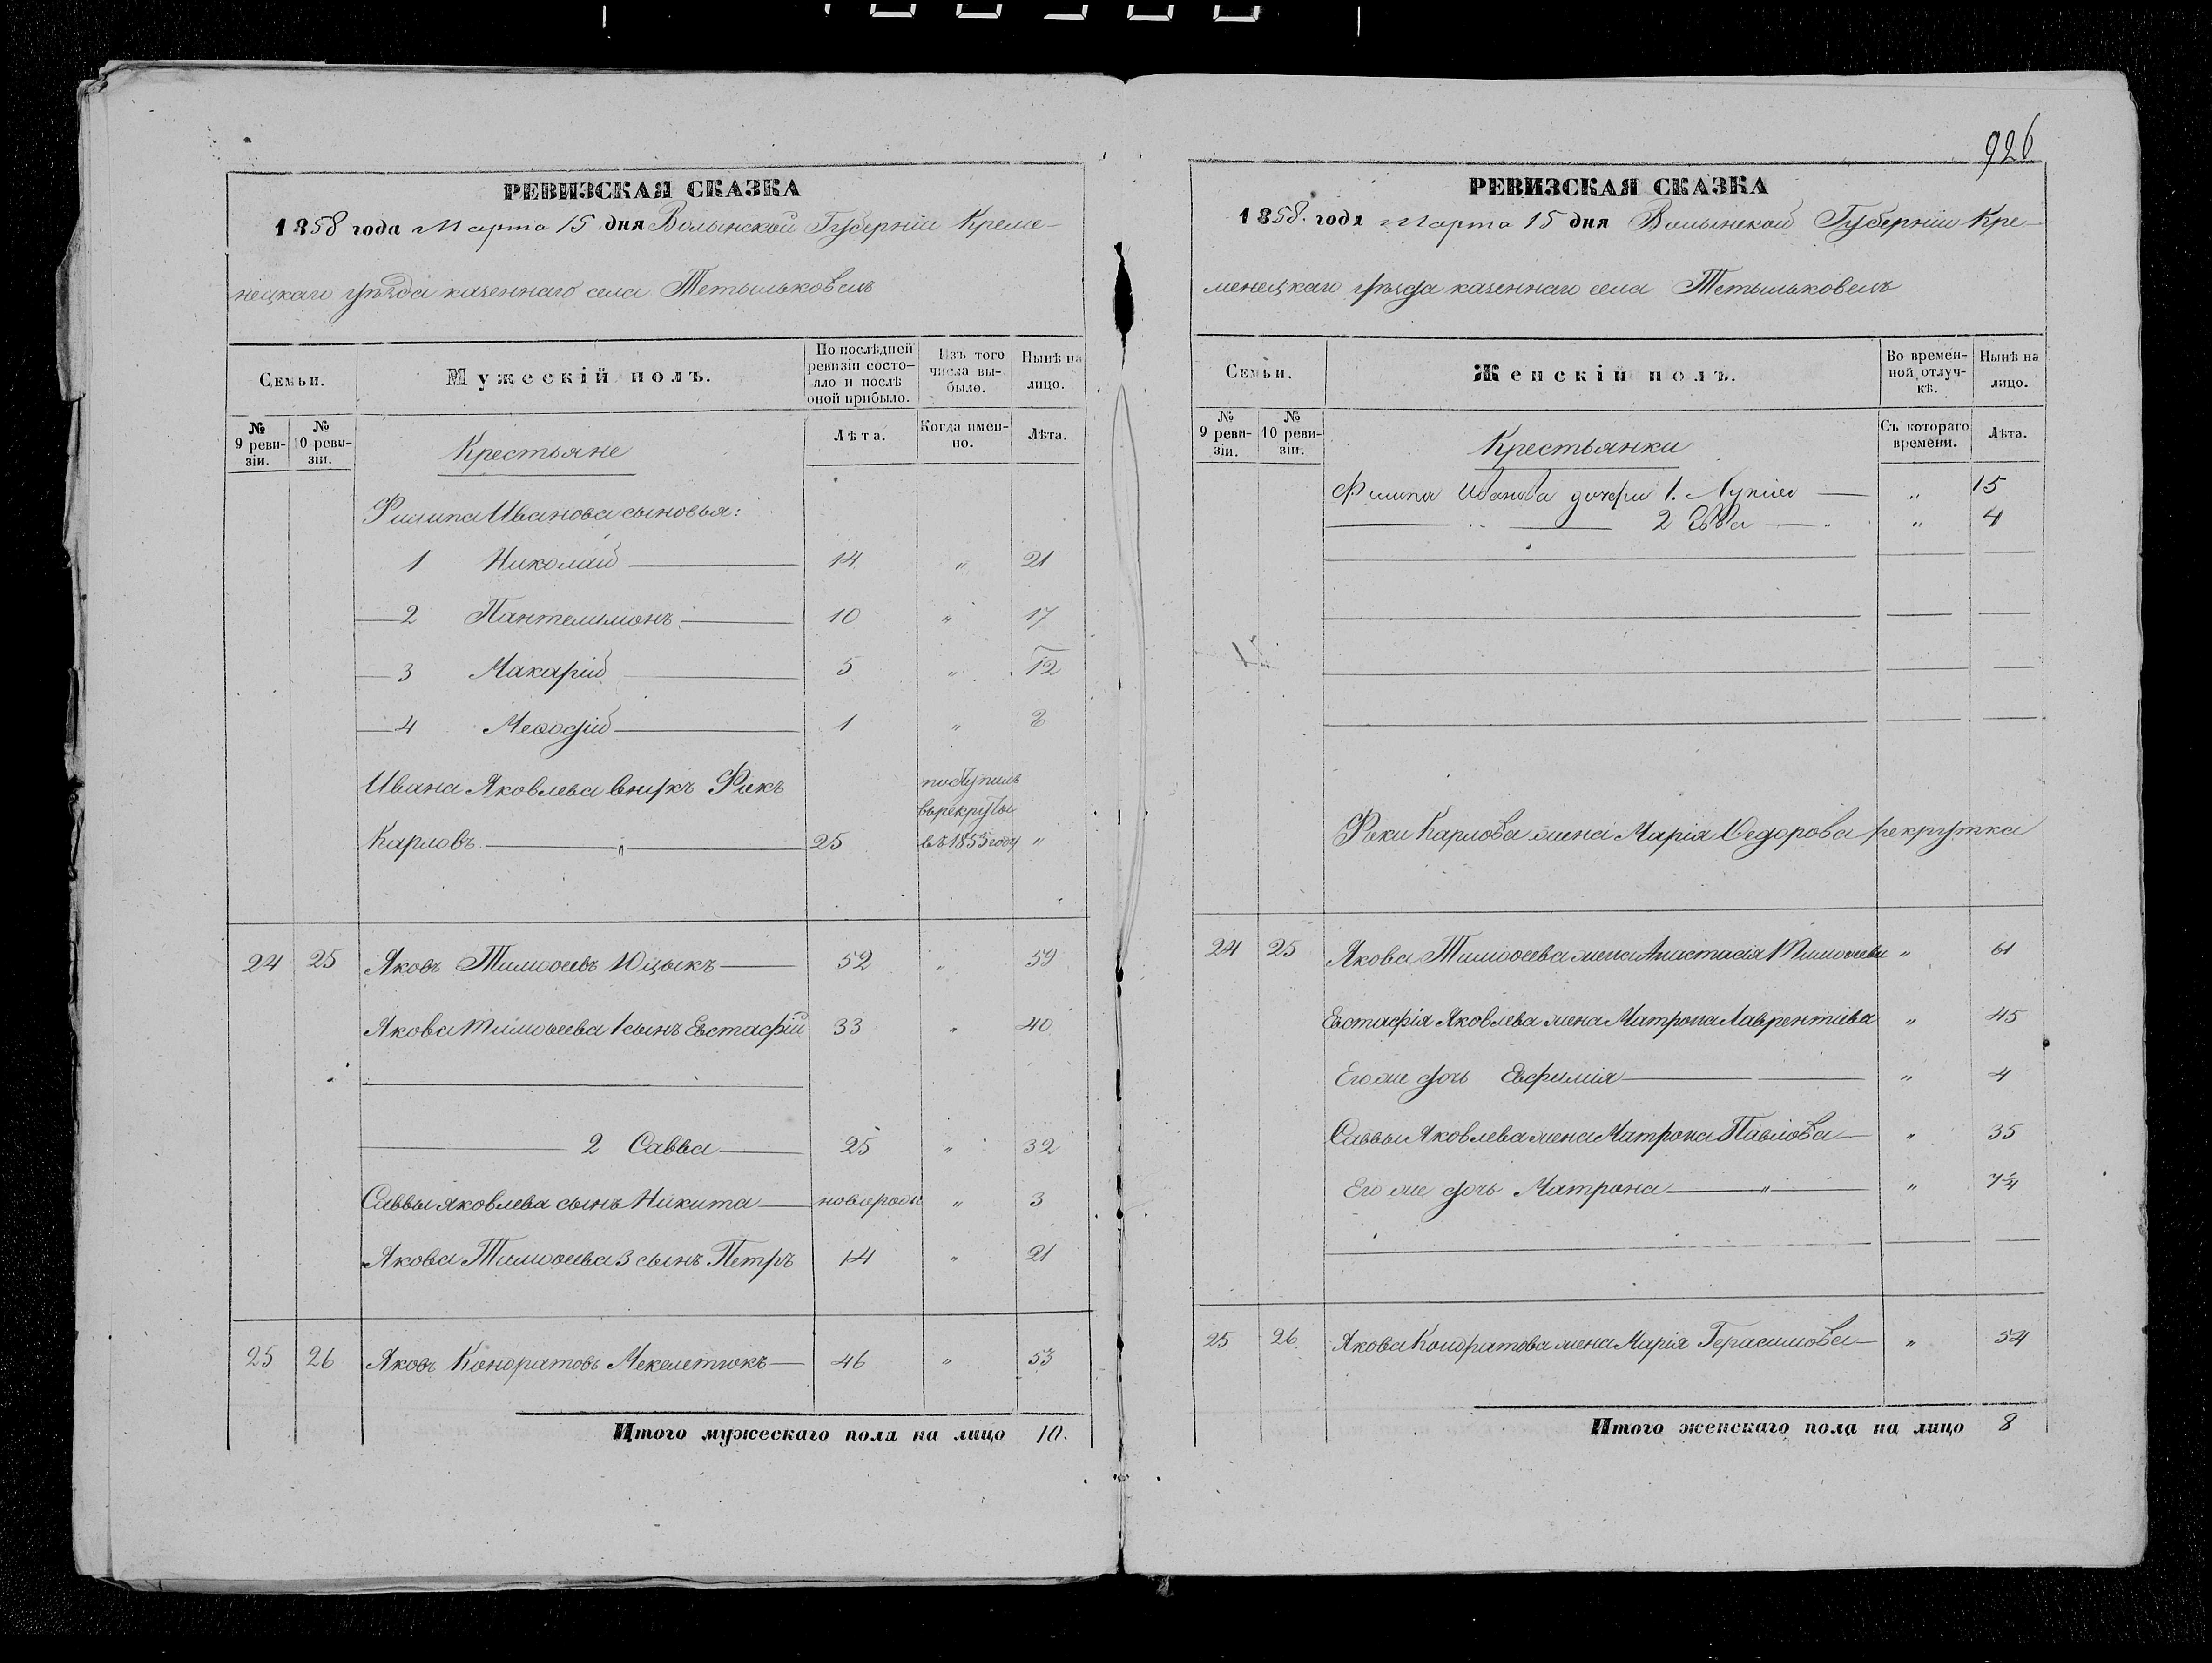 РЕВИЗСКАЯ СКАЗКА
1858 года Марта 15 дня Волынской Губерніи Креме-
нецкаго уѣзда казеннаго села Тетыльковецъ
Семьи.
Мужескій полъ.
По послѣдней ревизіи состо-яло и послѣ оной прибыло.
Изъ того числа вы-было.
Нынѣ на лицо.
№ 9 реви-зіи.
№ 10 реви-зіи.
Крестьяне
Лѣта.
Когда имен-но.
Лѣта.
Филипа Иванова сыновья:
1 Николай — 14 " 21
— 2 Пантелимонъ — 10 " 17
— 3 Макарій — 5 " 12
— 4 Меѳодій — 1 " 8
Ивана Яковлева внукъ Фокъ поступилъ
в рекруты
Карловъ — " — 25 въ 1853 году "
24 25 Яковъ Тимоѳеевъ Юцыкъ — 52 " 59
Якова Тимоѳеева 1 сынъ Евстафій 33 " 40
— 2 Савва — 25 " 32
Саввы Яковлева сынъ Никита — новорожд " 3
Якова Тимоѳеева 3 сынъ Петръ 14 " 21
25 26 Яковъ Кондратовъ Мекелетюкъ — 46 " 53
Итого мужескаго пола на лицо 10.
926
РЕВИЗСКАЯ СКАЗКА
1858. года Марта 15 дня Волынской Губерніи Кре-
менецкаго уѣзда казеннаго села Тетыльковецъ
Семьи.
Женскій полъ.
Во времен-ной отлуч-кѣ.
Нынѣ на лицо.
№ 9 реви-зіи.
№ 10 реви-зіи.
Крестьянки
Съ котораго времени.
Лѣта.
Филипа Иванова дочери 1. Лукія — " 15
— " — 2 Ева — " 4
Фоки Карлова жена Марія Ѳедорова рекрутка
24 25 Якова Тимоѳеева жена Анастасія Тимоѳеева " 61
Евстафія Яковлева жена Матрона Лаврентіева " 45
Его же дочь Евфимія — " 4
Саввы Яковлева жена Матрона Павлова — " 35
Его же дочь Матрона — " — "
25 26. Якова Кондратова жена Марія Герасимова — " 54
Итого женскаго пола на лицо 8